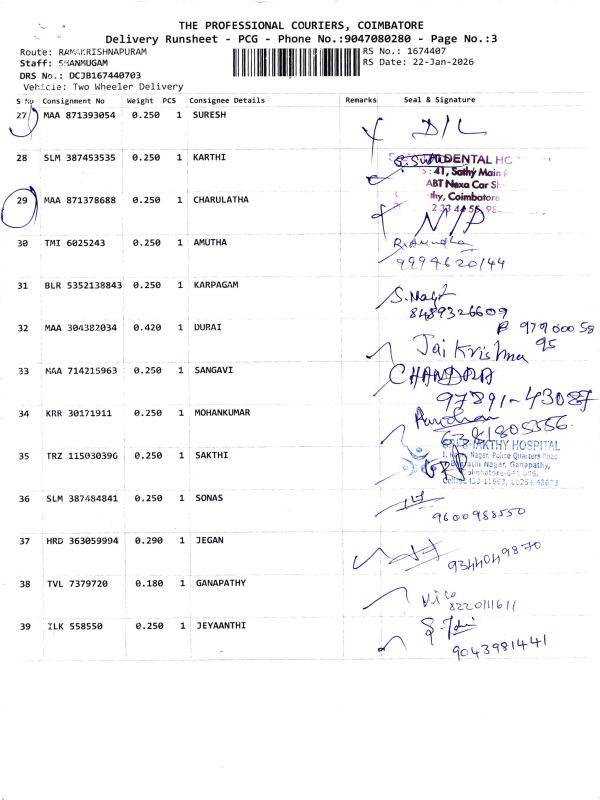 THE PROFESSIONAL COURIERS, COIMBATORE
Delivery Runsheet - PCG - Phone No.:9047080280 - Page No.:3
Route: RAMAKRISHNAPURAM
RS No.: 1674407
Staff: SHANMUGAM
RS Date: 22-Jan-2026
DRS No.: DCJB167440703
Vehicle: Two Wheeler Delivery
S No Consignment No Weight PCS Consignee Details Remarks Seal & Signature
27 MAA 871393054 0.250 1 SURESH D/L
28 SLM 387453535 0.250 1 KARTHI
DENTAL
41, Sathy Main
ABT Nexa Car
Coimbatore
29 MAA 871378688 0.250 1 CHARULATHA
30 TMI 6025243 0.250 1 AMUTHA
9994620144
31 BLR 5352138843 0.250 1 KARPAGAM
8489326609
32 MAA 304382034 0.420 1 DURAI
Jai Krishna
95
33 MAA 714215963 0.250 1 SANGAVI
CHANDRA
97891-43087
34 KRR 30171911 0.250 1 MOHANKUMAR
6381805556
35 TRZ 115030396 0.250 1 SAKTHI
SHAKTHY HOSPITAL
Nagar, Police Quarters Road,
Nagar, Ganapathy,
36 SLM 387484841 0.250 1 SONAS
9600988550
37 HRD 363059994 0.290 1 JEGAN
9344049870
38 TVL 7379720 0.180 1 GANAPATHY
8220111611
39 ILK 558550 0.250 1 JEYAANTHI
9043981441